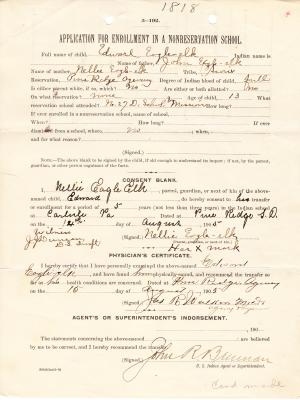 1818
5-192.
APPLICATION FOR ENROLLMENT IN A NONRESERVATION SCHOOL.
Full name of child, Edward Eagle elk Indian name is
Name of father, John Eagle elk
Name of mother, Nellie Eagle elk Tribe, Sioux
Pine Ridge Agency Degree of Indian blood of child, full
Is either parent white, if so, which? No Are either or both allotted? No
On what reservation? none Age? 13 What
reservation school attended? Day School Mission How long?
If ever enrolled in a nonreservation school, name of school,
When? How long? If ever
from a school, where, no ; when,
and for what reason?
(Signed)
NOTE.—The above to be signed by the child, if old enough to understand its import; if not, by the parent,
guardian, or other person cognizant of the facts.
CONSENT BLANK.
I, Nellie Eagle Elk parent, guardian, or next of kin of the above-
named child, Edward do hereby consent to his transfer
or enrollment for a period of 5 years (not less than three years) in the Indian school
at Carlisle Pa Dated at Pine Ridge S.D.
this 10th day of August 1905
Witness
(Signed) Nellie Eagle elk
Her X mark
PHYSICIAN'S CERTIFICATE.
I hereby certify that I have personally examined the above-named Edward
Eagle elk and have found physically sound, and recommend the transfer so
far as his health conditions are concerned. Dated at Pine Ridge Agency
this 10 day of August 1905
(Signed)
AGENT'S OR SUPERINTENDENT'S INDORSEMENT.
190
The statements concerning the above-named are believed
by me to be correct, and I hereby recommend the transfer.
(Signed) John R Brennan
U. S. Indian Agent or Superintendent.
Card made